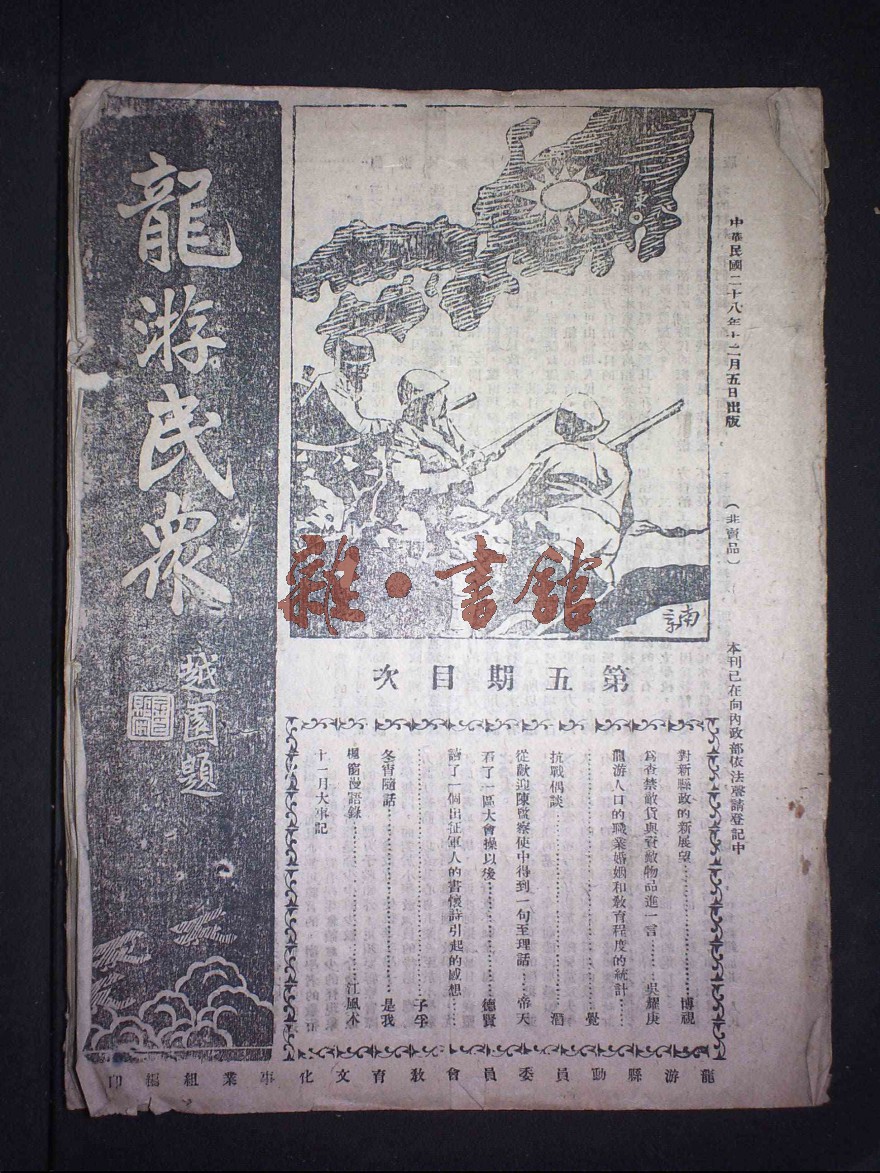 龍游民衆
越園題
東京
中華民國二十八年十二月五日出版
(非賣品)
本刊已在向內政部依法聲請登記中
雜·書館
南
第五期目次
對新縣政的新展望……博視
爲查禁敵貨與資敵物品進一言……吳耀庚
龍游人口的職業婚姻和敎育程度的統計……
……覺
抗戰偶談……酒
從歡迎陳監察使中得到一句至理話……帝天
看了一區大會操以後……德賢
讀了一個出征軍人的書懷詩引起的感想……
……子孚
冬宵隨話……是我
楓窗漫語錄……江風木
十一月大事記
龍游縣動員委員會敎育文化事業組編印